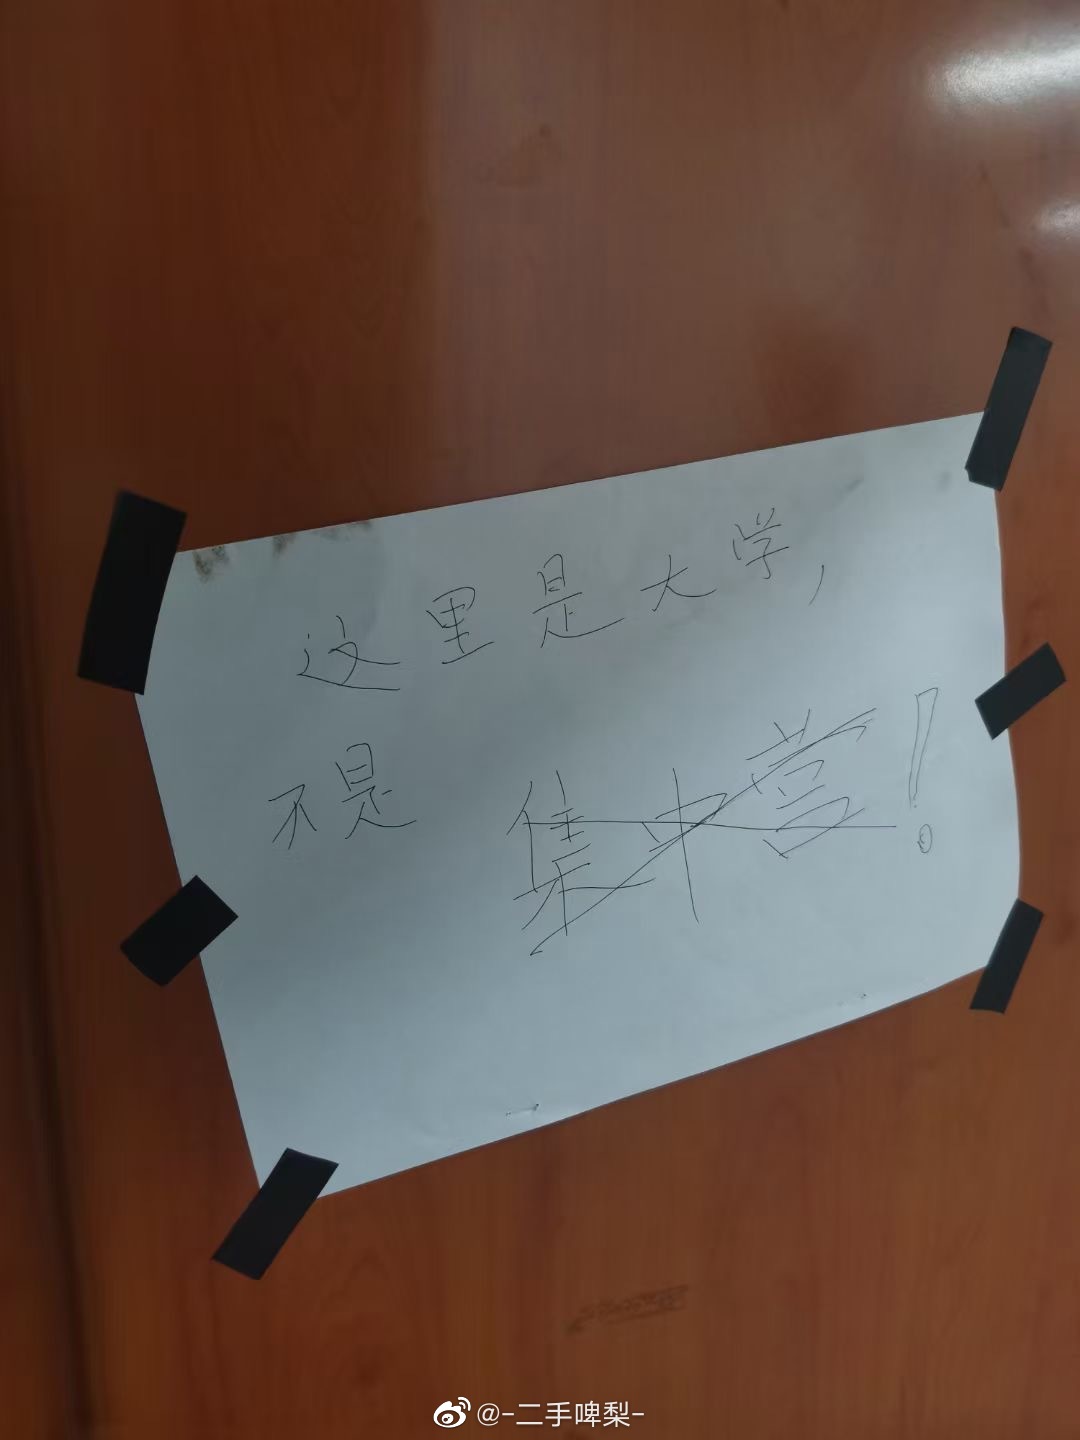 这里是大学,
不是 集中营!
@-二手啤梨-